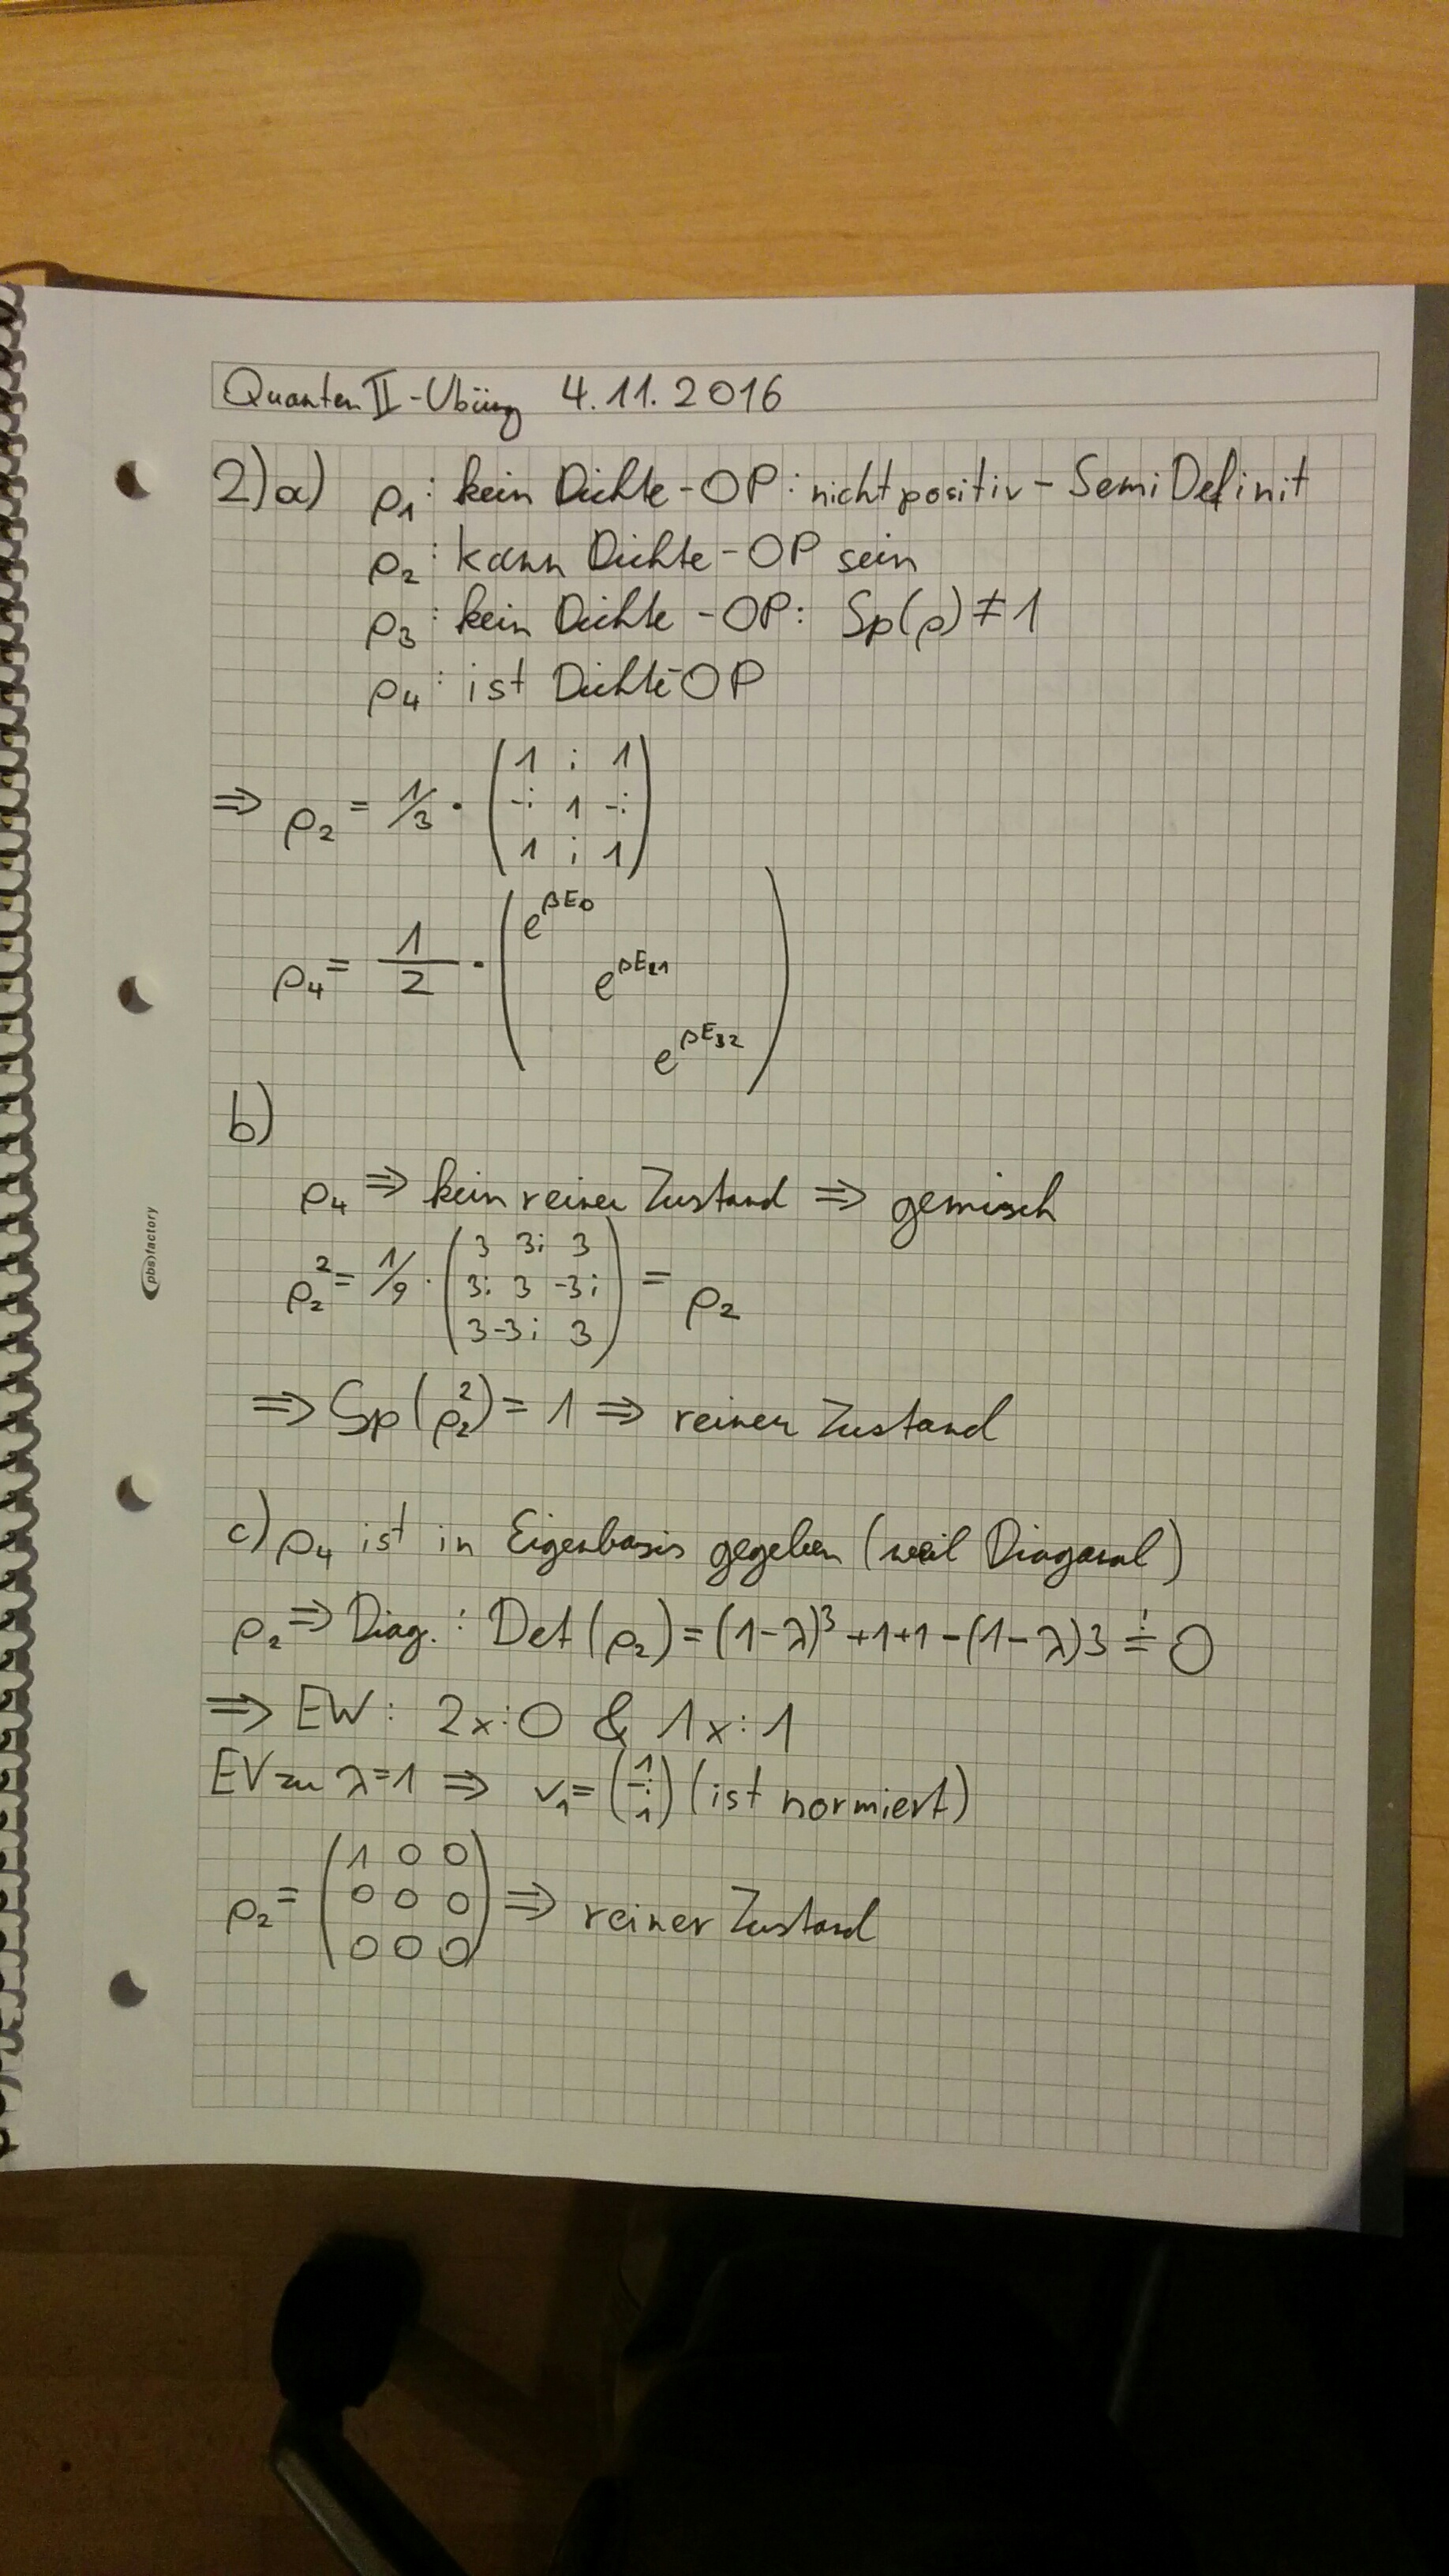 Quanten II-Übung 4.11.2016
2)a) ρ₁: kein Dichte-OP: nicht positiv-SemiDefinit
ρ₂: kann Dichte-OP sein
ρ₃: kein Dichte-OP: Sp(ρ) ≠ 1
ρ₄: ist Dichte-OP
⇒ ρ₂ = 1/3 · ( 1 i 1
-i 1 -i
1 i 1 )
ρ₄ = 1/2 · ( e^βE₀
e^βE₂₁
e^βE₃₂ )
b)
ρ₄ ⇒ kein reiner Zustand ⇒ gemisch
ρ₂² = 1/9 · ( 3 3i 3
3i 3 -3i
3 -3i 3 ) = ρ₂
⇒ Sp(ρ₂²) = 1 ⇒ reiner Zustand
c) ρ₄ ist in Eigenbasis gegeben (weil Diagonal)
ρ₂ ⇒ Diag.: Det(ρ₂) = (1-λ)³ +1+1-(1-λ)3 =! 0
⇒ EW: 2x:0 & 1x:1
EV zu λ=1 ⇒ v₁ = ( 1
-i
1 ) (ist normiert)
ρ₂ = ( 1 0 0
0 0 0
0 0 0 ) ⇒ reiner Zustand
(pbs)factory